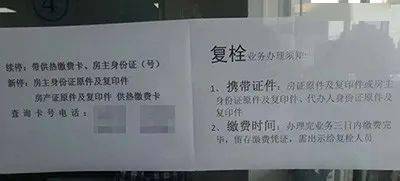 ④
续停：带供热缴费卡、房主身份证（号）
新停：房主身份证原件及复印件
房产证原件及复印件 供热缴费卡
查询卡号电话：
复栓业务办理须知：
1、携带证件：房证原件及复印件或房主
身份证原件及复印件、代办人身份证原件及
复印件
2、缴费时间：办理完业务三日内缴费完
毕，留存缴费凭证，需出示给复检人员